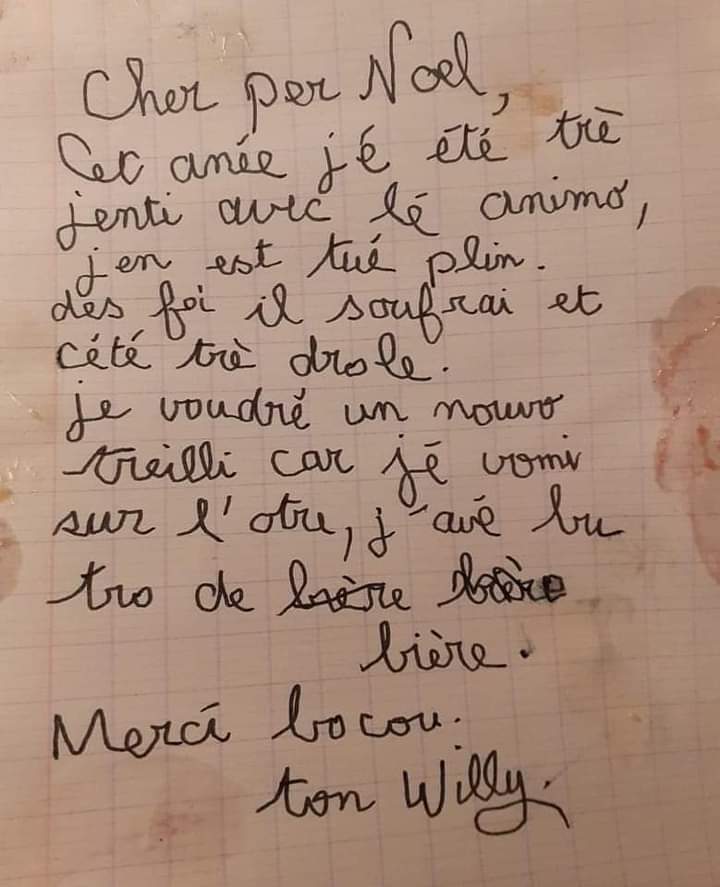 Cher per Noel,
Cet anée jé été trè
jenti avec lé animo,
j en est tué plin.
des foi il soufrai et
cété trè drole.
je voudré un nouvo
treilli car jé vomi
sur l'otre, j'avé bu
tro de
bière.
Merci bocou.
ton Willy.